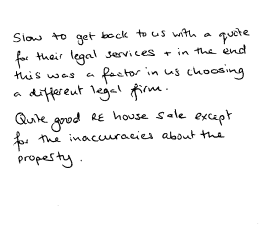 Slow to get back to us with a quote
for their legal services + in the end
this was a factor in us choosing
a different legal firm.
Quite good RE house sale except
for the inaccuracies about the
property.